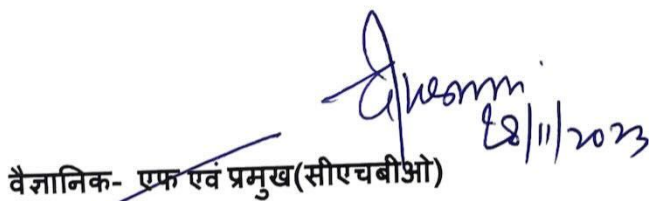 28/11/2023
वैज्ञानिक- एफ एवं प्रमुख(सीएचबीओ)